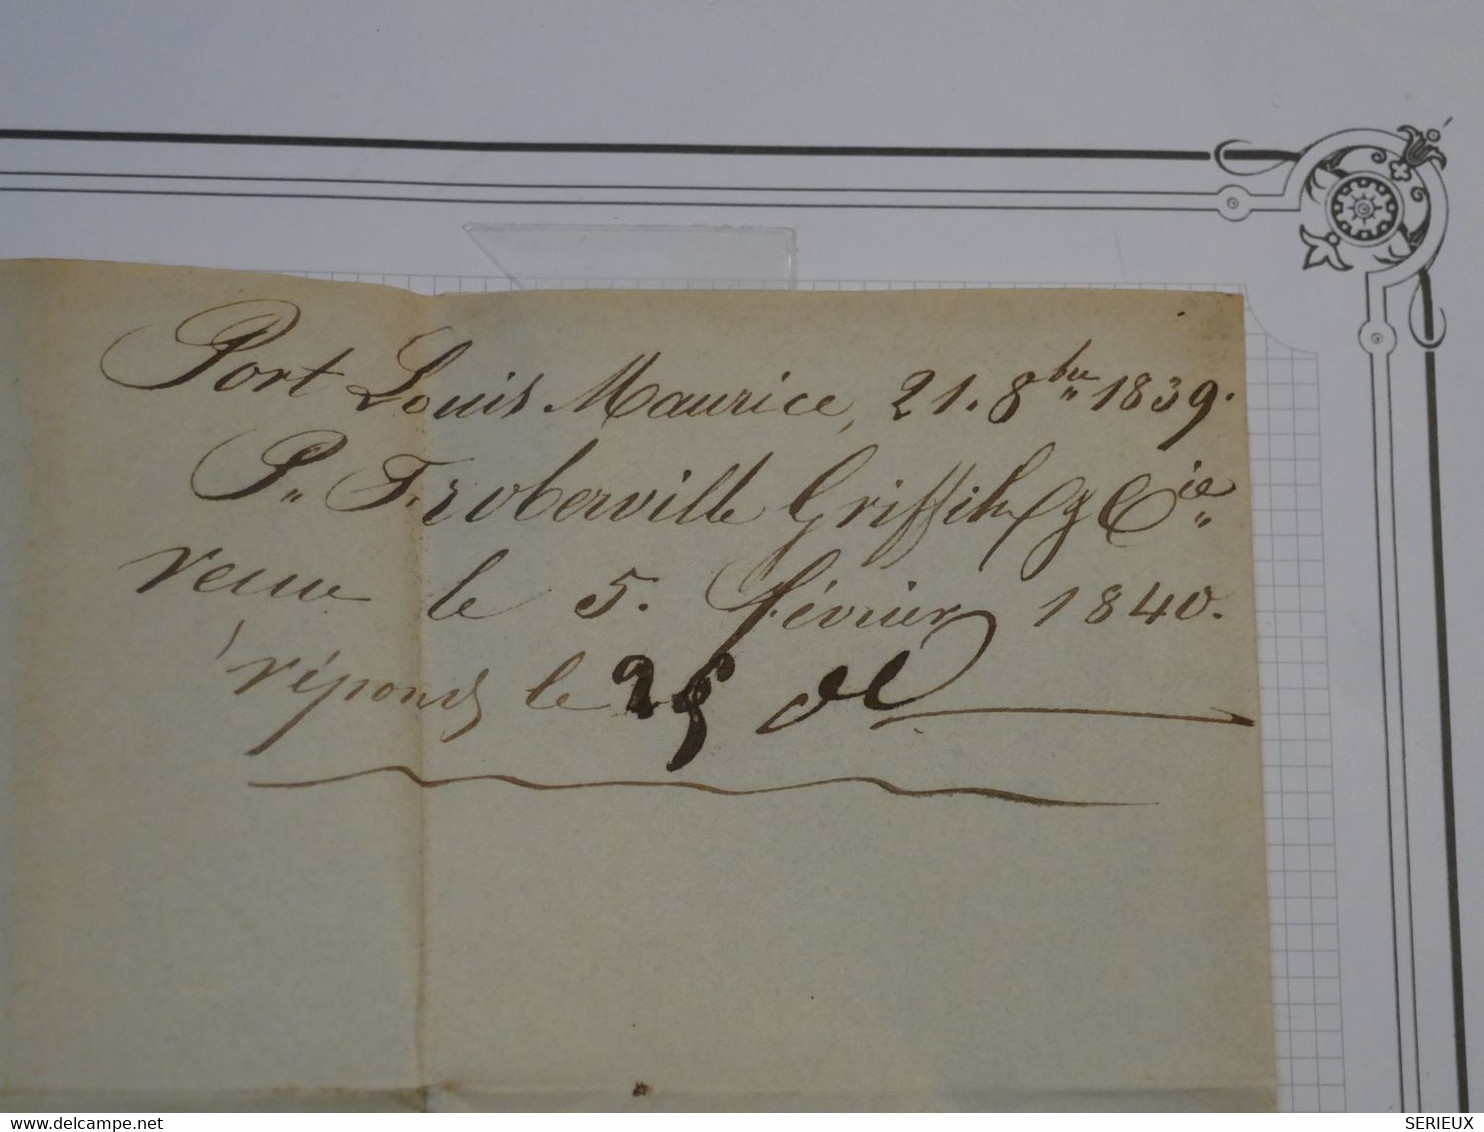 Port Louis Maurice, 21. 8bre 1839.
P. Froberville Griffith & Cie
reçue le 5. février 1840.
répondu le 25 dt
delcampe.net
SERIEUX